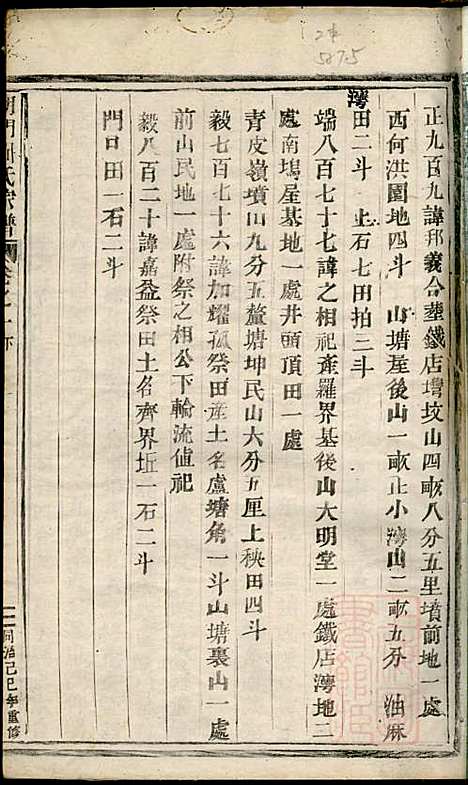 正九百九諱邦義合塟鐡店灣坟山四畝八分五里墳前地一處
西何洪園地四斗　山塘屋後山一畝正小灣山二畝五分　油麻
灣田二斗　上石七田拍三斗
端八百七十七諱之相祀產羅界基後山大明堂一處鐡店灣地二
處南塢屋基地一處井頭頂田一處
青皮嶺墳山九分五釐塘坤民山六分五厘上秧田四斗
毅七百七十六諱加耀孤祭田產土名盧塘角一斗山塘裏山一處
前山民地一處附祭之相公下輪流值祀
毅八百二十諱嘉益祭田土名齊界坵一石二斗
門口田一石二斗
氏宗譜
同治己巳年重修